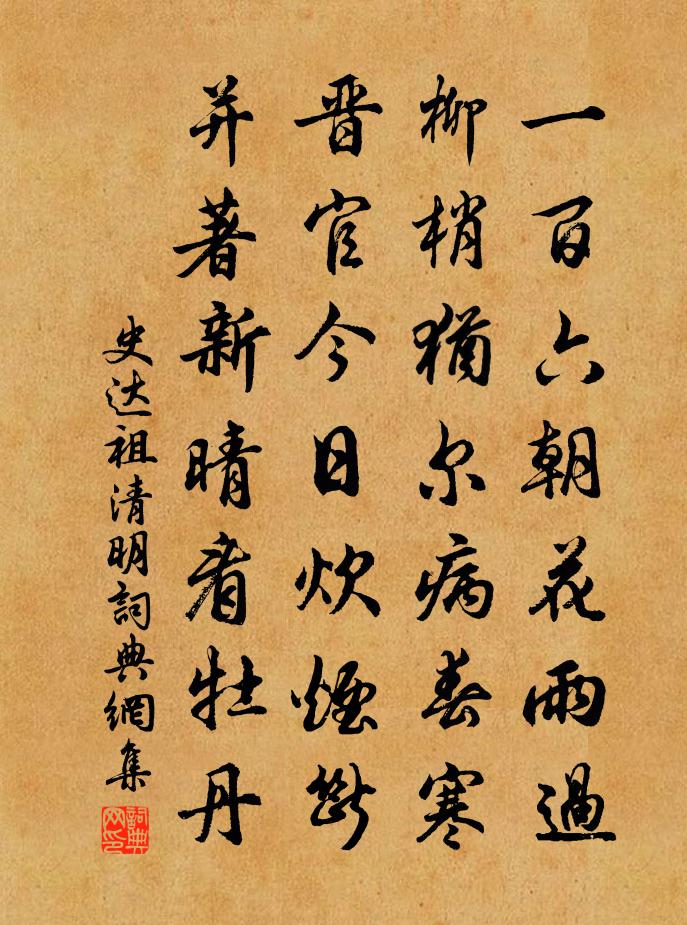 一百六朝花雨過
柳梢猶尔病春寒
晋官今日炊煙斷
并著新晴看牡丹
史达祖清明詞典網集
詞典网印